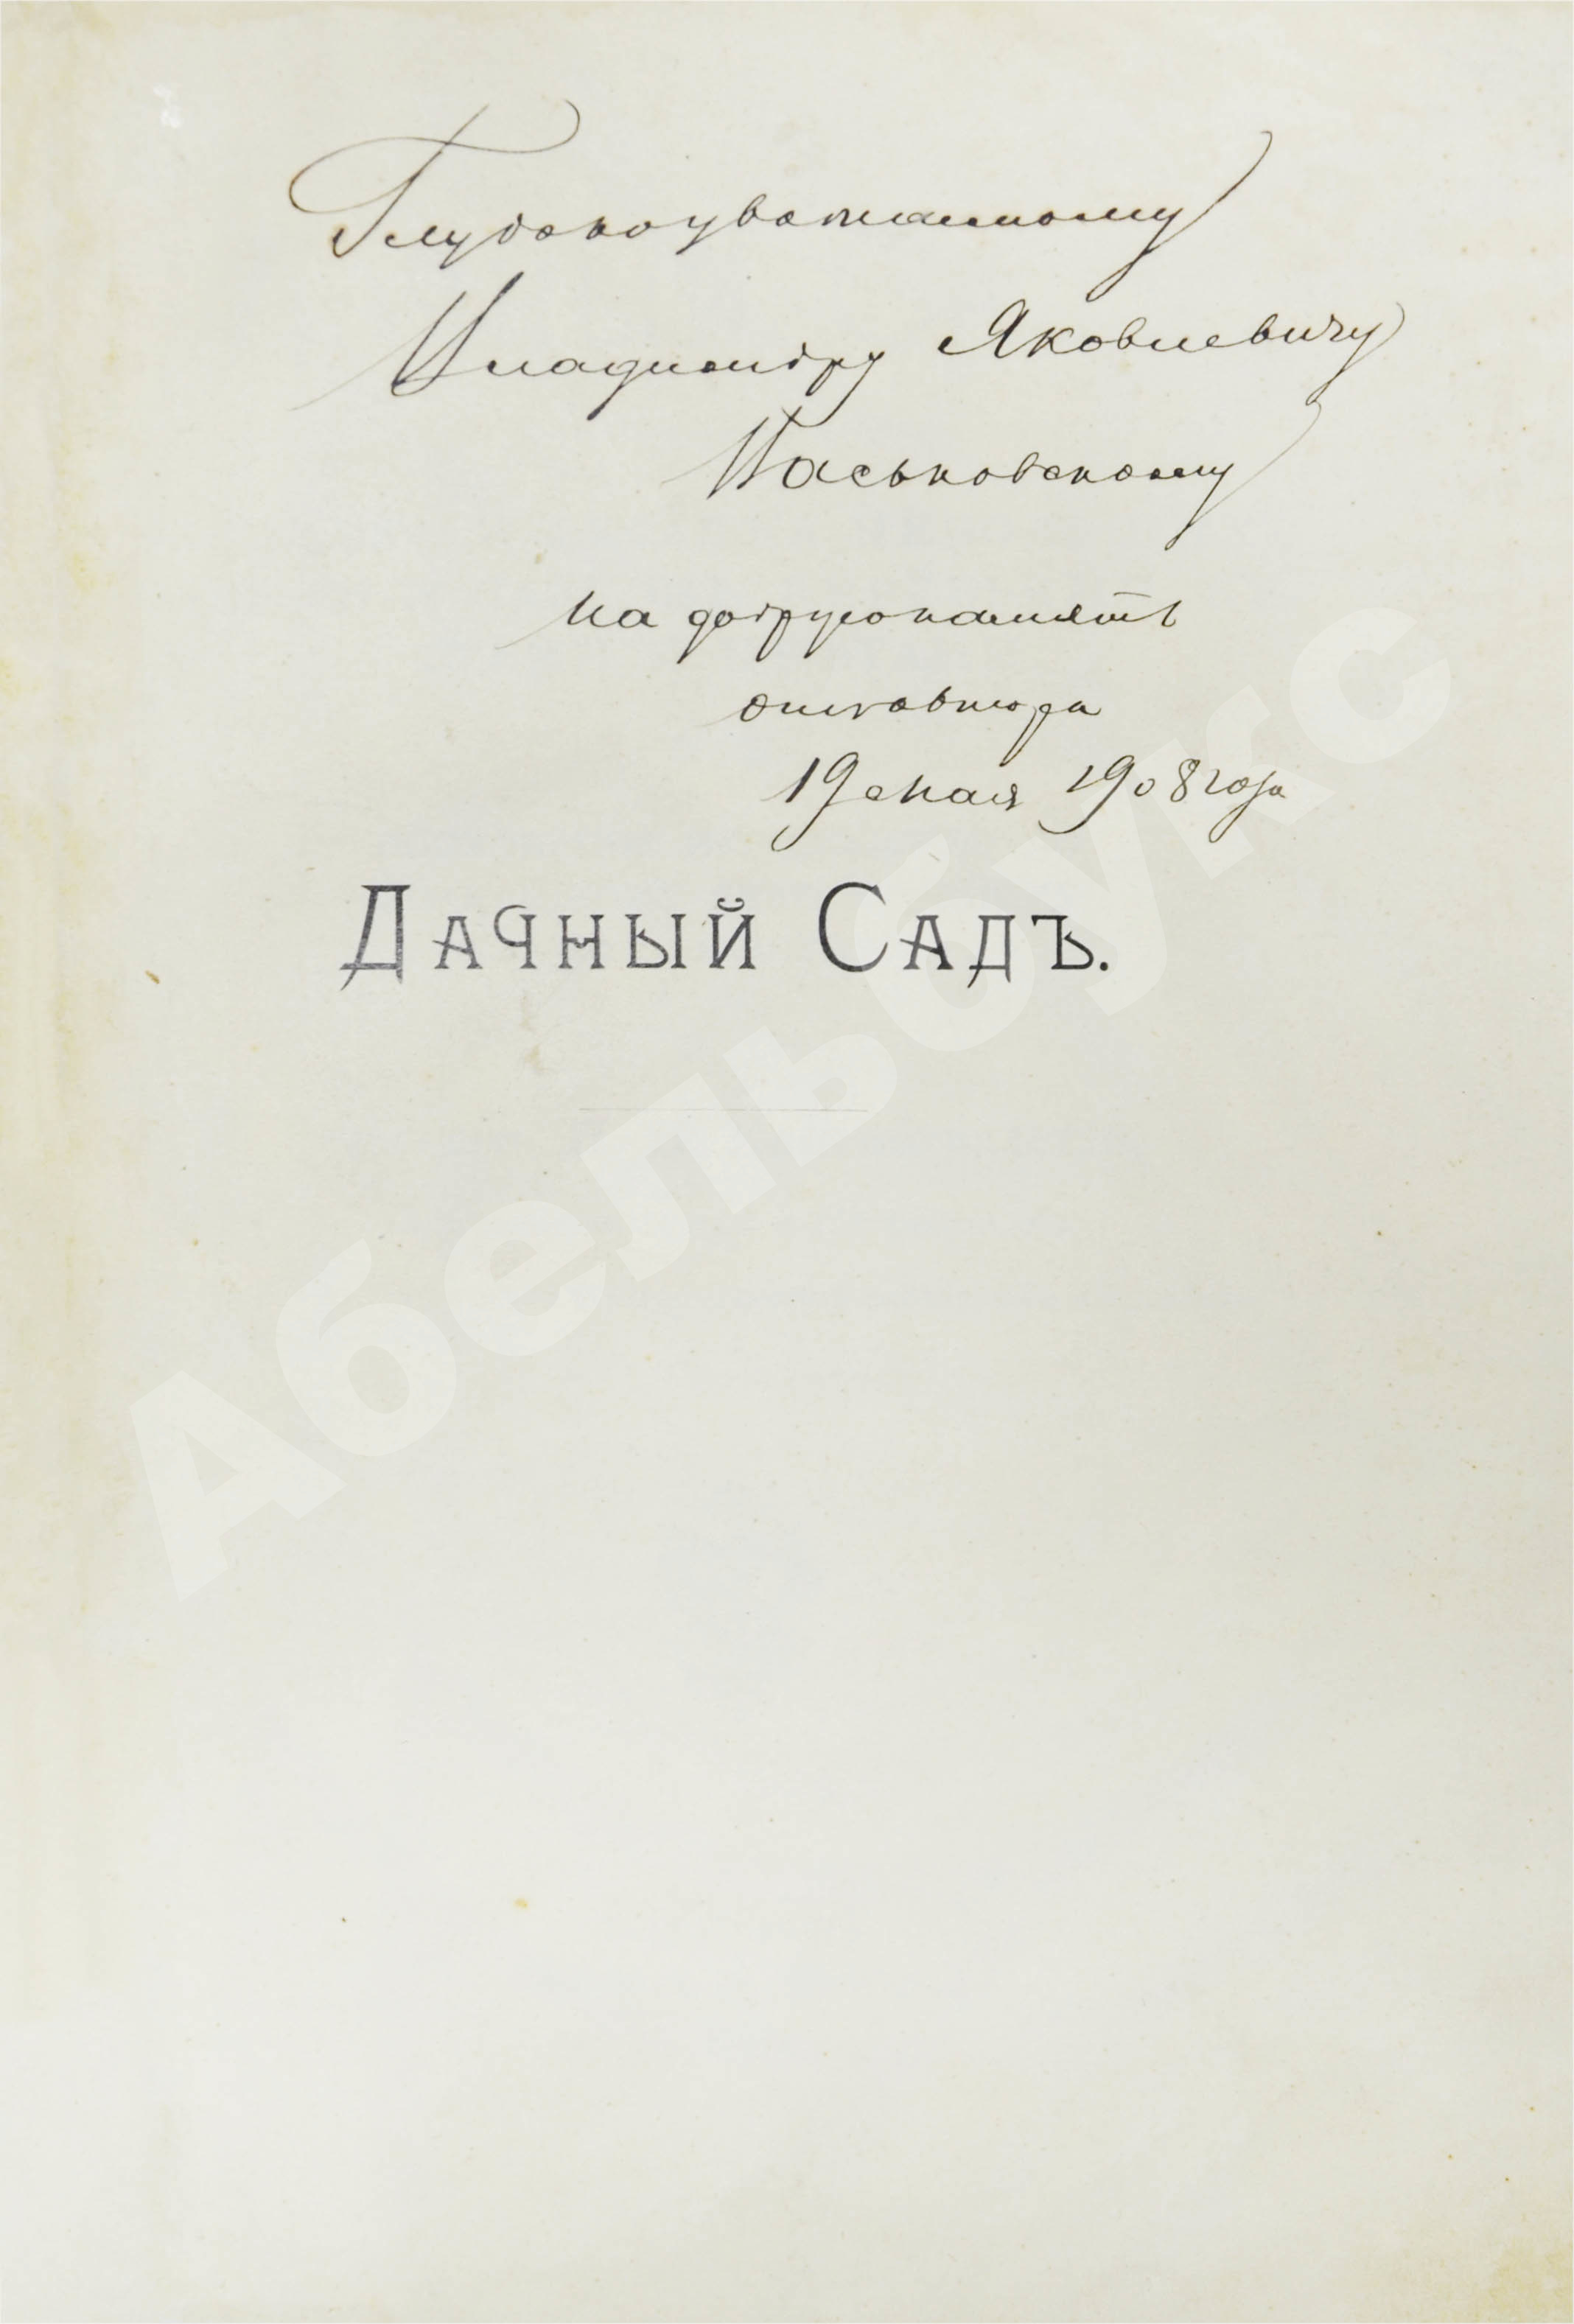 Глубокоуважаемому
Владимиру Яковлевичу
Паськовскому
на добрую память
отъ автора
19 мая 1908 года
Дачный Садъ.
Абельбукс